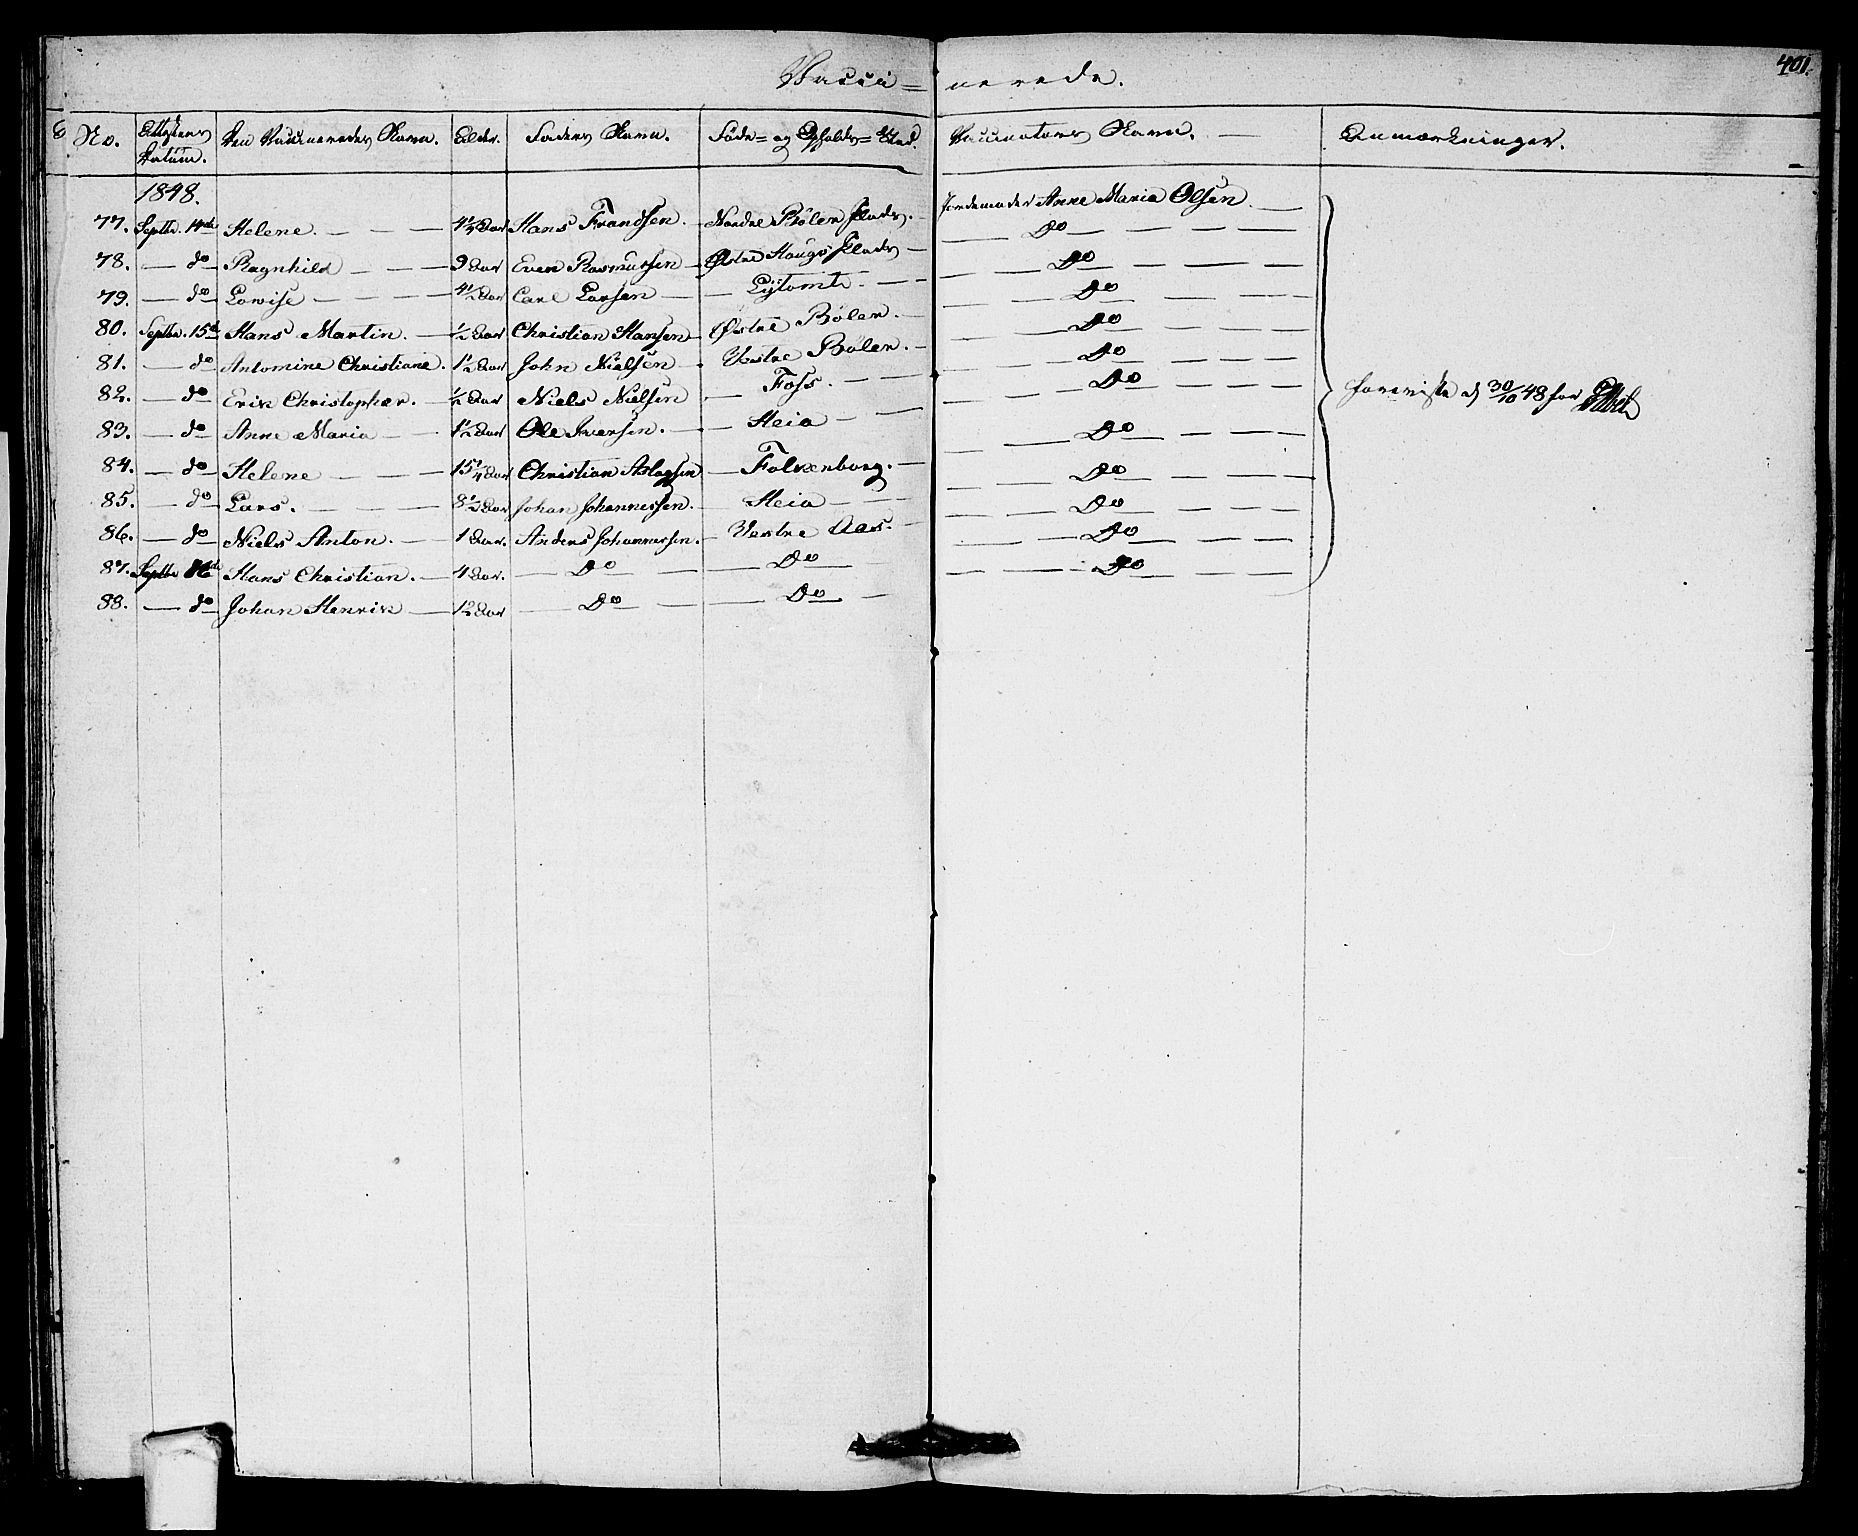 Vacci= nerede.
401.
No. Attestens Datum. Den Vaccineredes Navn. Alder. Faders Navn. Føde= og Opholds=Sted. Vaccinators Navn. Anmærkninger.
1848.
77. Septbr. 14de Helene. 4 1/4 Aar Hans Frandsen. Nordre Bølers Plads. Jordemoder Anne Maria Olsen.
78. do Ragnhild 9 Aar Even Rasmussen Østre Haugs Plads Do
79. do Lovise 4 1/2 Aar Carl Larsen Lystomt. Do
80. Septbr. 15de Hans Martin. 1/2 Aar Christian Hansen Østre Bøler. Do
81. do Antomine Christiane. 1 1/2 Aar John Nielsen Vestre Bøler. Do
82. do Erik Christopher. 1/2 Aar Niels Nielsen Foss. Do
83. do Anne Maria 1 1/2 Aar Ole Iversen. Heia Do
84. do Helene 15 1/4 Aar Christian Aslagsen Falkenborg. Do
85. do Lars. 8 1/2 Aar Johan Johannessen. Heia Do
86. do Niels Anton. 1 Aar. Anders Johannessen. Vestre Aas. Do
87. Septbr 16de Hans Christian. 4 Aar. Do Do Do
88. do Johan Henrik 1 1/2 Aar Do Do Do
foreviste d 30/10 48 for